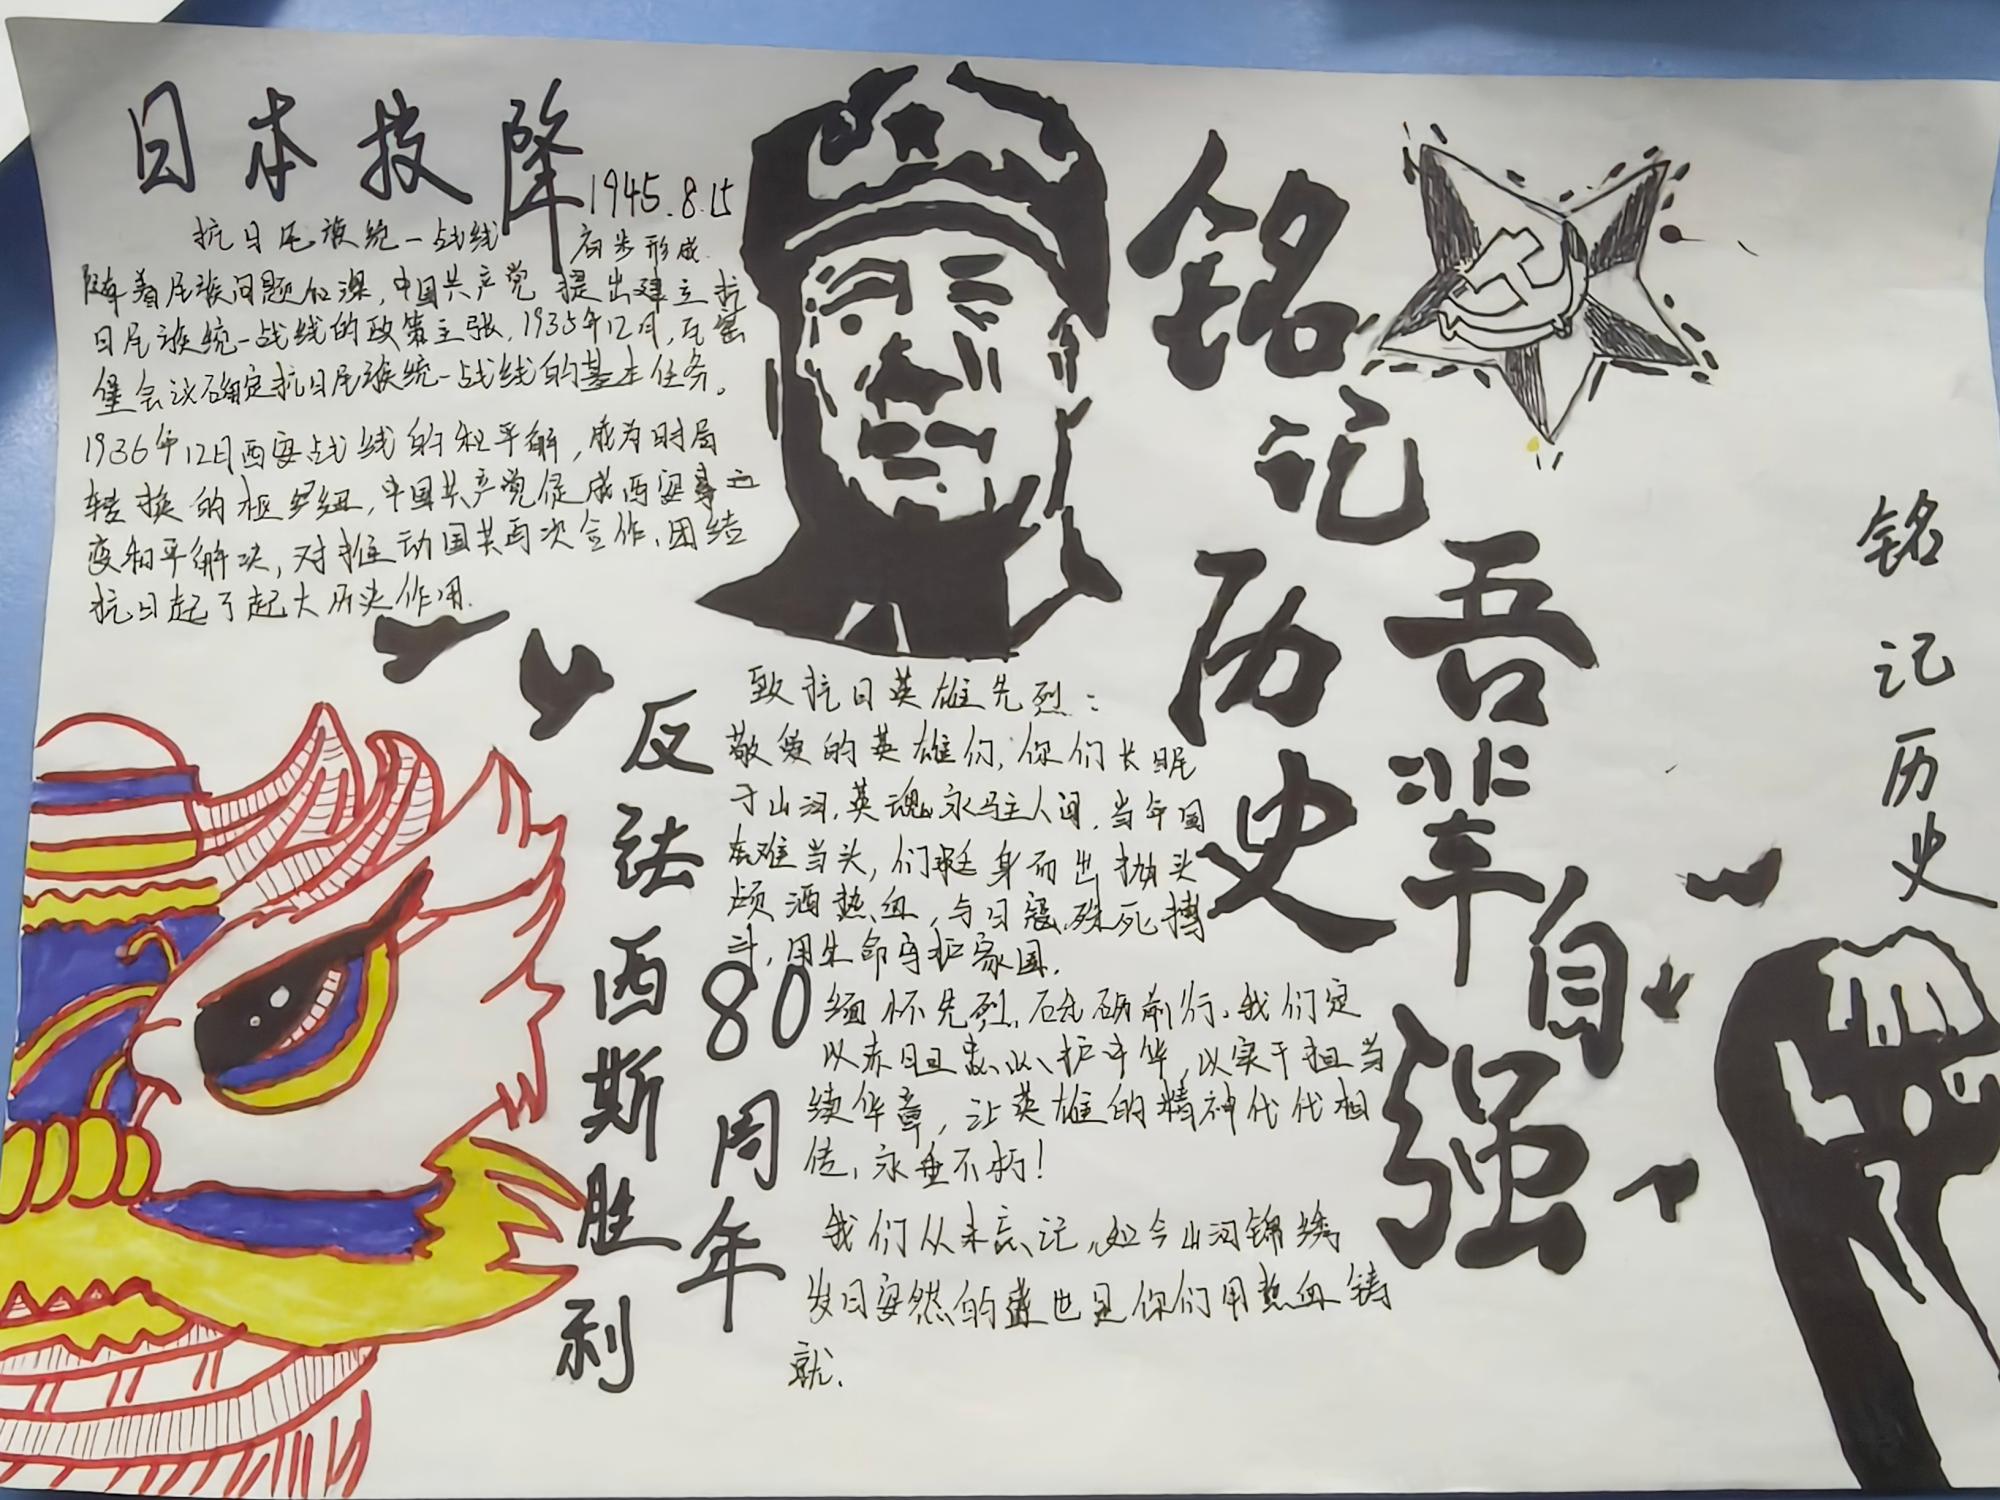 日本投降
1945.8.15
抗日民族统一战线 初步形成
随着民族问题加深,中国共产党提出建立抗
日民族统一战线的政策主张,1935年12月,瓦窑
堡会议确定抗日民族统一战线的基本任务。
1936年12月西安战线的和平解,成为时局
转换的枢纽,中国共产党促成西安事
变和平解决,对推动国共再次合作,团结
抗日起了起大历史作用.
反法西斯胜利
80周年
致抗日英雄先烈:
敬爱的英雄们,你们长眠
于山河,英魂永驻人间,当年国
难当头,们挺身而出抛头
颅洒热血,与日寇殊死搏
斗,用生命守护家国.
缅怀先烈,砥砺前行,我们定
以赤胆忠心护中华,以实干担当
续华章,让英雄的精神代代相
传,永垂不朽!
我们从未忘记,如今山河锦绣
岁日安然的盛也是你们用热血铸
就.
铭记历史
吾辈自强
铭记历史